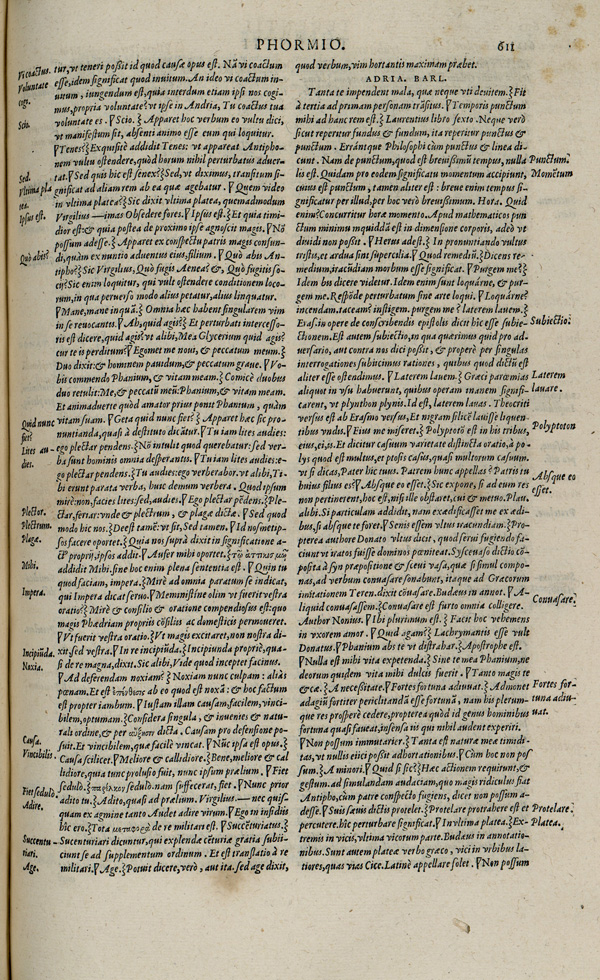 PHORMIO.
611
Vi coactus.
Voluntate
cogi.
Scio.
Sed
Vltima pla
tea.
Ipsus est.
Quò abis?
Quid nunc
fiet?
Lites au-
dies.
Plector.
Plectrum.
Plagæ.
Mihi.
Impera.
Incipiūda.
Noxia.
Causa.
Vincibilis.
Fiet sedulò.
Adire.
Succentu-
riari.
Age.
tur, vt teneri possit id quod causæ opus est. Nā vi coactum
esse, idem significat quod inuitum. An ideo vi coactum in-
uitum, iungendum est, quia interdum etiam ipsi nos cogi-
mus, propria voluntate? vt ipse in Andria, Tu coactus tua
voluntate es. ¶Scio.} Apparet hoc verbum eo vultu dici,
vt manifestum sit, absenti animo esse cum qui loquitur.
¶Tenes?} Exquisitè addidit Tenes: vt appareat Antipho-
nem vultu ostendere, quòd horum nihil perturbatus aduer-
tat. ¶Sed quis hic est senex?} Sed, vt diximus, transitum si-
gnificat ad aliam rem ab ea quæ agebatur. ¶Quem video
in vltima platea?} Sic dixit vltima platea, quemadmodum
Virgilius —imas Obsedere fores. ¶Ipsus est.} Et quia timi-
dior est: & quia postea de proximo ipse agnoscit magis. ¶Nō
possum adesse.} Apparet ex conspectu patris magis confun-
di, quàm ex nuntio aduentus eius, filium. ¶Quò abis Anti-
pho?} Sic Virgilius, Quò fugis Aenea? &, Quò fugitis so-
cij? Sic enim loquitur, qui vult ostendere conditionem loco-
rum, in qua peruerso modo alius petatur, alius linquatur.
¶Mane, mane inquā.} Omnia hæc habent singularem vim
in se reuocantis. ¶Ah, quid agis?} Et perturbati intercesso-
ris est dicere, quid agis? vt alibi, Mea Glycerium quid agis?
cur te is perditum? ¶Egomet me noui, & peccatum meum.}
Duo dixit: & hominem pauidum, & peccatum graue. ¶Vo-
bis commendo Phanium, & vitam meam.} Comicè duobus
duo retulit: Me, & peccatū meū: Phanium, & vitam meam.
Et animaduerte quòd amator prius ponit Phanium, quàm
vitam suam. ¶Geta quid nunc fiet?} Apparet hæc sic pro-
nuntianda, quasi à destituto dicātur. ¶Tu iam lites audies:
ego plectar pendens.} Nō intulit quod querebatur: sed ver-
ba sunt hominis omnia desperantis. ¶Tu iam lites audies: e-
go plectar pendens.} Tu audies: ego verberabor. vt alibi, Ti-
bi erunt parata verba, huic demum verbera. Quod ipsum
mirè: non, facies lites: sed, audies. ¶Ego plectar pēdens.} Ple-
ctar, feriar: vnde & plectrum, & plagæ dictæ. ¶Sed quod
modo hic nos.} Deest tamē: vt sit, Sed tamen. ¶Id nosmetip-
sos facere oportet.} Quia nos suprà dixit in significatione a-
ct⁹ proprij, ipsos addit. ¶Aufer mihi oportet.}
addidit Mihi. sine hoc enim plena sententia est. ¶Quin tu
quod faciam, impera.} Mirè ad omnia paratum se indicat,
qui Impera dicat seruo. ¶Meministine olim vt fuerit vestra
oratio?} Mirè & consilio & oratione compendiosus est: quo
magis Phædriam propriis cōsiliis ac domesticis permoueret.
¶Vt fuerit vestra oratio.} Vt magis excitaret, non nostra di-
xit, sed vestra. ¶In re incipiūda.} Incipiunda propriè, qua-
si de re magna, dixit. Sic alibi, Vide quod inceptet facinus.
¶Ad defendendam noxiam?} Noxiam nunc culpam: aliàs
pœnam. Et est ab eo quod est noxā: & hoc factum
est propter iambum. ¶Iustam illam causam, facilem, vinci-
bilem, optumam.} Considera singula, & inuenies & natu-
rali ordine, & per dicta. ¶Causam pro defensione po-
suit. Et vincibilem, quæ facilè vincat. ¶Nūc ipsa est opus.}
Causa scilicet. ¶Meliore & callidiore.} Bene, meliore & cal
lidiore, quia tunc profusio fuit, nunc ipsum prælium. ¶Fiet
sedulò.} sedulò. nam suffecerat, fiet. ¶Nunc prior
adito tu.} Adito, quasi ad prælium. Virgilius.—nec quis-
quam ex agmine tanto Audet adire virum. ¶Ego in insidiis
hîc ero.} Tota de re militari est. ¶Succēturiatus.}
Succenturiari dicuntur, qui explendæ cēturiæ gratia subii-
ciunt se ad supplementum ordinum. Et est translatio à re
militari. ¶Age.} Potuit dicere, verò, aut ita. sed age dixit,
quod verbum, vim hortantis maximam præbet.
ADRIA. BARL.
Tanta te impendent mala, quæ neque vti deuitem.} Fit
à tertia ad primam personam trāsitus. ¶Temporis punctum
mihi ad hanc rem est.} Laurentius libro sexto. Neque verò
sicut reperitur fundus & fundum, ita reperitur punctus &
punctum. Errántque Philosophi cùm punctus & linea di-
cunt. Nam de punctum, quod est breuissimū tempus, nulla
lis est. Quidam pro eodem significatu momentum accipiunt,
cuius est punctum, tamen aliter est: breue enim tempus si-
gnificatur per illud, per hoc verò breuissimum. Hora. Quid
enim? Concurritur horæ momento. Apud mathematicos pun
ctum minimu mquiddā est in dimensione corporis, adeò vt
diuidi non possit. ¶Herus adest.} In pronuntiando vultus
tristis, et ardua sint supercilia. ¶Quod remediū.} Dicens re-
medium, iracūdiam morbum esse significat. ¶Purgem me?}
Idem bis dicere videtur. Idem enim sunt loquárne, & pur-
gem me. Respōde perturbatum sine arte loqui. ¶Loquárne?
incendam. taceam? instigem. purgem me? laterem lauem.}
Eras. in opere de conscribendis epistolis dicit hîc esse subie-
ctionem. Est autem subiectio, in qua quærimus quid pro ad-
uersario, aut contra nos dici possit, & properè per singulas
interrogationes subiicimus rationes, quibus quod dictū est
aliter esse ostendimus. ¶Laterem lauem.} Græci parœmias
aliquot in vsu habuerunt, quibus operam inanem signifi-
carent, vt plynthon plynis. Id est, laterem lauas. Theocriti
versus est ab Erasmo versus, Et nigram silicē lauisse liquen-
tibus vndis. ¶Eius me miseret.} Polyptotō est in his tribus,
eius, ei, is. Et dicitur casuum varietate distincta oratio, à po-
lys quod est multus, et ptosis casus, quasi multorum casuum.
vt si dicas, Pater hic tuus. Patrem hunc appellas? Patris tu
huius filius es? ¶Absque eo esset.} Sic expone, si ad eum res
non pertinerent, hoc est, nisi ille obstaret, cui & metuo. Plau.
alibi Si particulam addidit, nam exædificasset me ex ædi-
bus, si absque te foret. ¶Senis essem vltus iracundiam.} Pro-
pterea authore Donato vltus dicit, quod serui fugiendo fa-
ciunt vt iratos fuisse dominos pœniteat. Syscevaso dictio cō-
posita à syn præpositione & scevi vasa, quæ si simul compo-
nas, ad verbum conuasare sonabunt, itaque ad Græcorum
imitationem Teren. dixit cōuasare. Budæus in annot. ¶A-
liquid conuasassem.} Conuasare est furto omnia colligere.
Author Nonius. ¶Ibi plurimum est.} Facit hoc vehemens
in vxorem amor. ¶Quid agam?} Lachrymantis esse vult
Donatus. ¶Phanium abs te vt distrahar.} Apostrophe est.
¶Nulla est mihi vita expetenda.} Sine te mea Phanium, ne
deorum quidem vita mihi dulcis fuerit. ¶Tanto magis te
&cæ.} A necessitate. ¶Fortes fortuna adiuuat.} Admonet
adagiū fortiter periclitandū esse fortunā, nam his plerum-
que res prosperè cedere, propterea quòd id genus hominibus
fortuna quasi faueat, infensa iis qui nihil audent experiri.
¶Non possum immutarier.} Tanta est naturæ meæ timidi-
tas, vt nullis eiici possit adhortationibus. ¶Cùm hoc non pos
sum.} A minori. ¶Quid si sic?} Hæc actionem requirunt, &
gestum. ad simulandam audaciam, quo magis ridiculus fiat
Antipho, cùm patre conspecto fugiens, dicet non possum a-
desse. ¶Suis sæuis dictis protelet.} Protelare protrahere est et
percutere. hîc perturbare significat. ¶In vltima platea.} Ex-
tremis in vicis, vltima vicorum parte. Budæus in annotatio-
nibus. Sunt autem plateæ verbo græco, vici in vrbibus la-
tiores, quas vias Cice. Latinè appellare solet. ¶Non possum
Punctum.
Momētum
Subiectio.
Laterem
lauare.
Polyptoton
Absque eo
esset.
Conuasare.
Fortes for-
tuna adiu-
uat.
Protelare.
Platea.